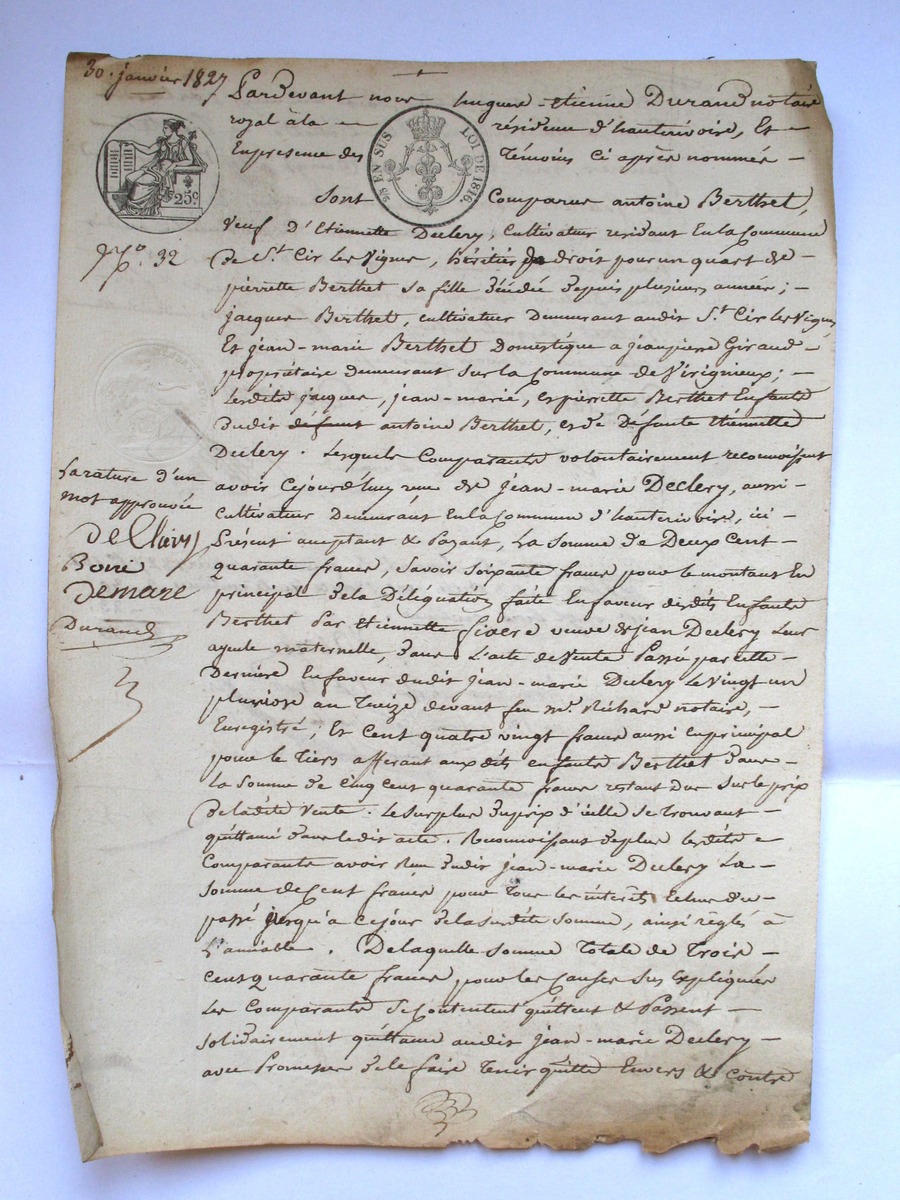 30. janvier 1827
Pardevant nous hugues-Etienne Durand notaire
royal à la résidence d'hauterivoire, Et
En presence des Témoins Ci après nommés
25c
⅖ EN SUS LOI DE 1816.
N.o 32
Sont Comparus antoine Berthet,
Veuf D'Etiennette Declery, Cultivateur residant En la Commune
de St. Cir les Vignes, héritier de droit pour un quart de
pierrette Berthet sa fille décédée depuis plusieurs années;
jacques Berthet, cultivateur Demeurant audit St. Cir les Vignes
Et jean-marie Berthet Domestique a jean pierre Giraud
propriétaire demeurant sur la Commune de Virignieux;
Lesdits jacques, jean-marie, et pierrette Berthet Enfants
dudit défunt antoine Berthet, et de Défunte Etiennette
Declery. Lesquels Comparants volontairement reconnoissent
avoir Cejourd'huy reçu de Jean-marie Declery, aussi
cultivateur Demeurant En la Commune d'hauterivoire, ici
Présent acceptant & Payant, La somme de Deux Cent
quarante francs, savoir soixante francs pour le montant En
principal de la Délégation faite En faveur desdits Enfants
Berthet Par Etiennette veuve de jean Declery Leur
ayeule maternelle, dans L'acte de Vente Passé par cette
Dernière En faveur dudit Jean-marie Declery Le Vingt un
pluviose an Treize devant feu Me. Richard notaire,
Enregistré; Et Cent quatre vingt francs aussi En principal
pour le Tiers afferant aux dits enfants Berthet dans
La Somme de Cinq Cent quarante francs restant Due sur le prix
de ladite Vente. Le surplus du prix d'icelle se trouvant
quittancé dans ledit acte. Reconnoissant de plus lesdits
Comparants avoir Reçu dudit jean-marie Declery La
Somme de Cent francs pour tous les intérêts Echus du
passé jusqu'à Ce jour de la susdite somme, ainsi réglés à
L'amiable. De laquelle somme Totale de Trois
Cent quarante francs pour les Causes sus Expliquées
Les Comparants se Contentent quittent & Passent
Solidairement quittance audit Jean-marie Declery
avec Promesse de le faire Tenir quitte Envers & Contre
La rature d'un
mot approuvée
Demare
Durand